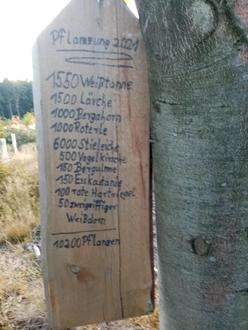 Pflanzung 2021
1550 Weißtanne
1500 Lärche
1000 Bergahorn
1000 Roterle
6000 Stieleiche
500 Vogelkirsche
150 Bergulme
150 Esskastanie
100 rote Hartriegel
50 zweigriffiger
Weißdorn
10200 Pflanzen